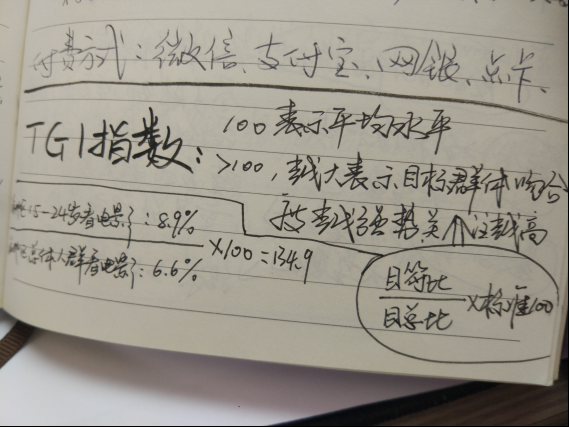 付费方式：微信、支付宝、网银、点卡、
TGI指数：
100表示平均水平
>100，越大表示目标群体吻合
度越强势关↑注越高
15-24岁看电影：8.9%
总体人群看电影：6.6%
×100=134.9
目符比
目总比
×标准100